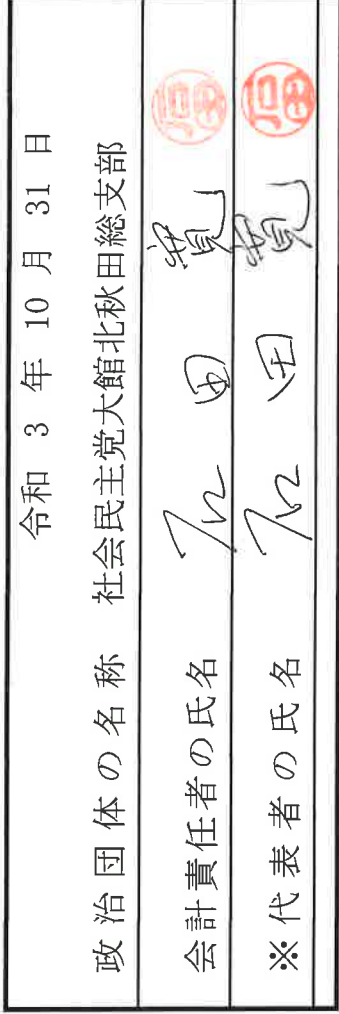 令和 3 年 10 月 31 日
政治団体の名称 社会民主党大館北秋田総支部
会計責任者の氏名 石田 寛 石田
※代表者の氏名 石田 寛 石田